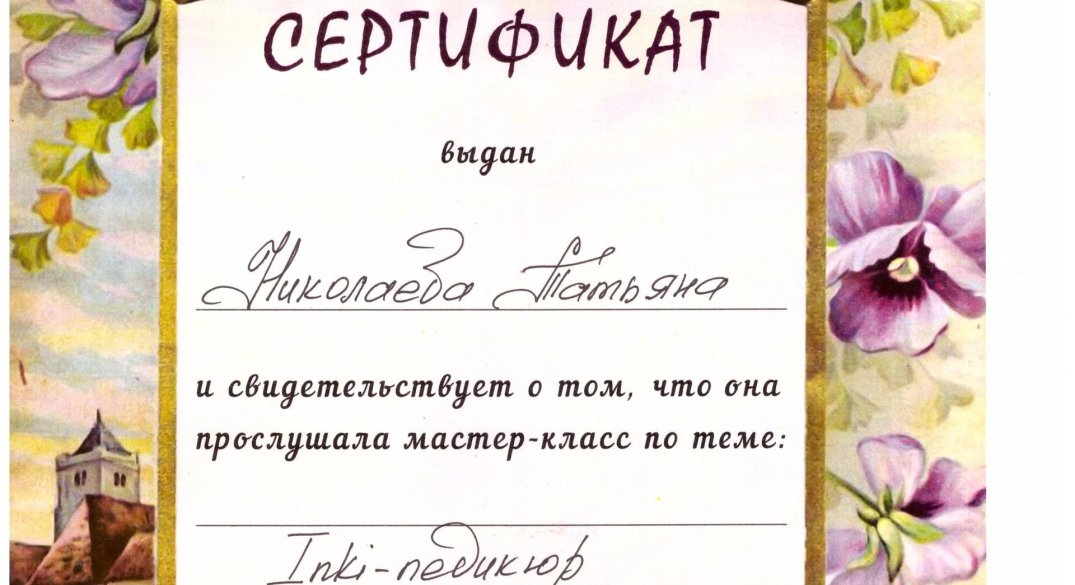 СЕРТИФИКАТ
выдан
Николаева Татьяна
и свидетельствует о том, что она
прослушала мастер-класс по теме:
Inki-педикюр